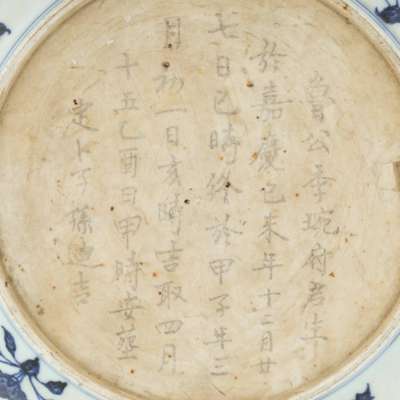 魯公季琬府君生
於嘉慶己未年十二月廿
七日巳時終於甲子年三
月初一日亥時吉取四月
十五乙酉日甲時安塟
定卜子孫迪吉